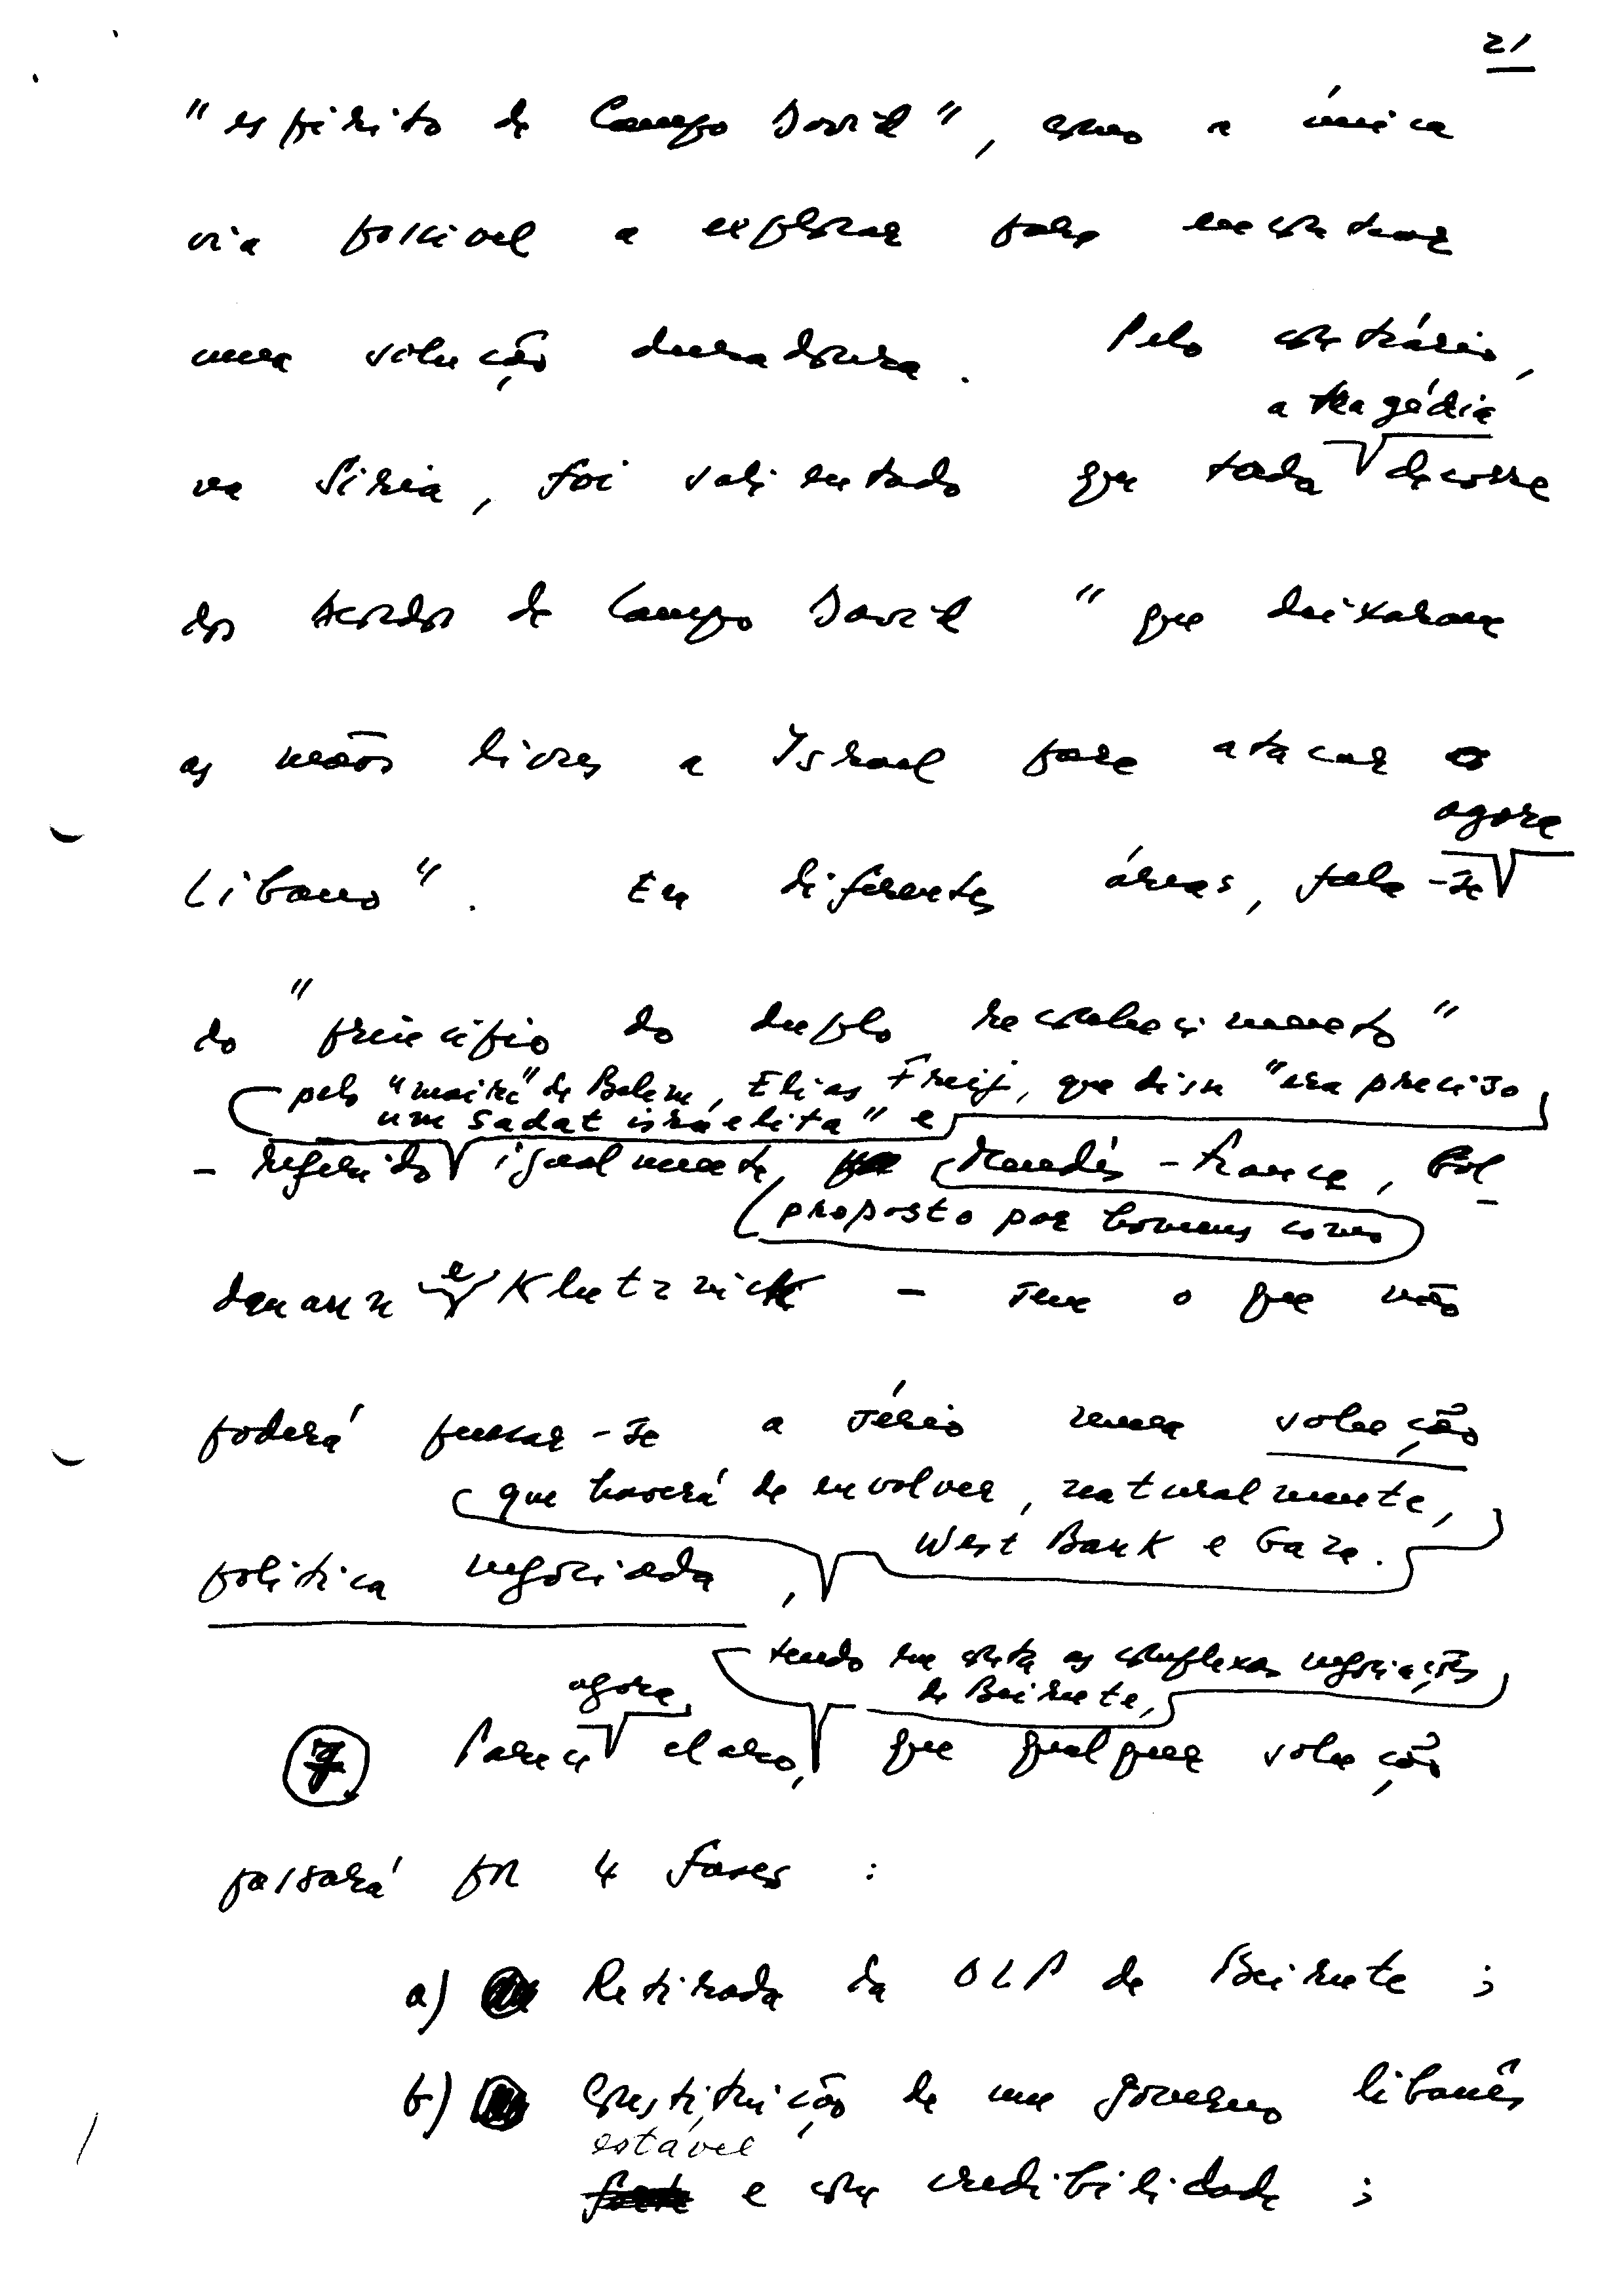 21
"espírito de Camp David", como a única
via possível a explorar para encontrar
uma solução duradoura. Pelo contrário,
a tragédia
na Síria, foi salientado que toda decorre
dos Acordos de Camp David "que deixaram
as mãos livres a Israel para atacar o
agora
Libano". Em diferentes áreas, fala-se
do "princípio do duplo reconhecimento"
pelo "maire" de Belem, Elias Freij, que disse "era preciso
um Sadat israelita" e
- referido igualmente, Mendès-France, Gol-
proposto por homens como
dmann e Klutznick - sem o que não
poderá pensar-se a sério numa solução
que haverá de envolver, naturalmente,
West Bank e Gaza.
política negociada,
tendo em conta as complexas negociações
agora, de Beirute,
7 Parece claro, que qualquer solução
passará por 4 fases :
a) Retirada da OLP de Beirute ;
b) Constituição de um governo libanês
estável
forte e com credibilidade ;